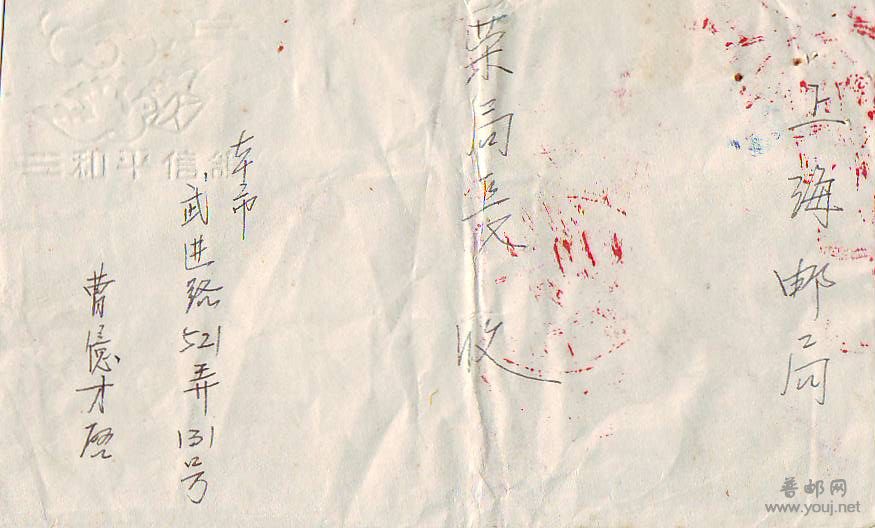 上海邮局
栗局長 收
本市
武进路521弄131号
曹憶才啓
和平信
普邮网
www.youj.net